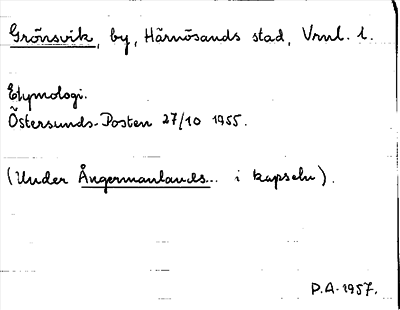 Grönsvik, by, Härnösands stad, Vrnl. l.
Etymologi.
Östersunds-Posten 27/10 1955.
(Under Ångermanlands... i kapseln).
P.A. 1957.